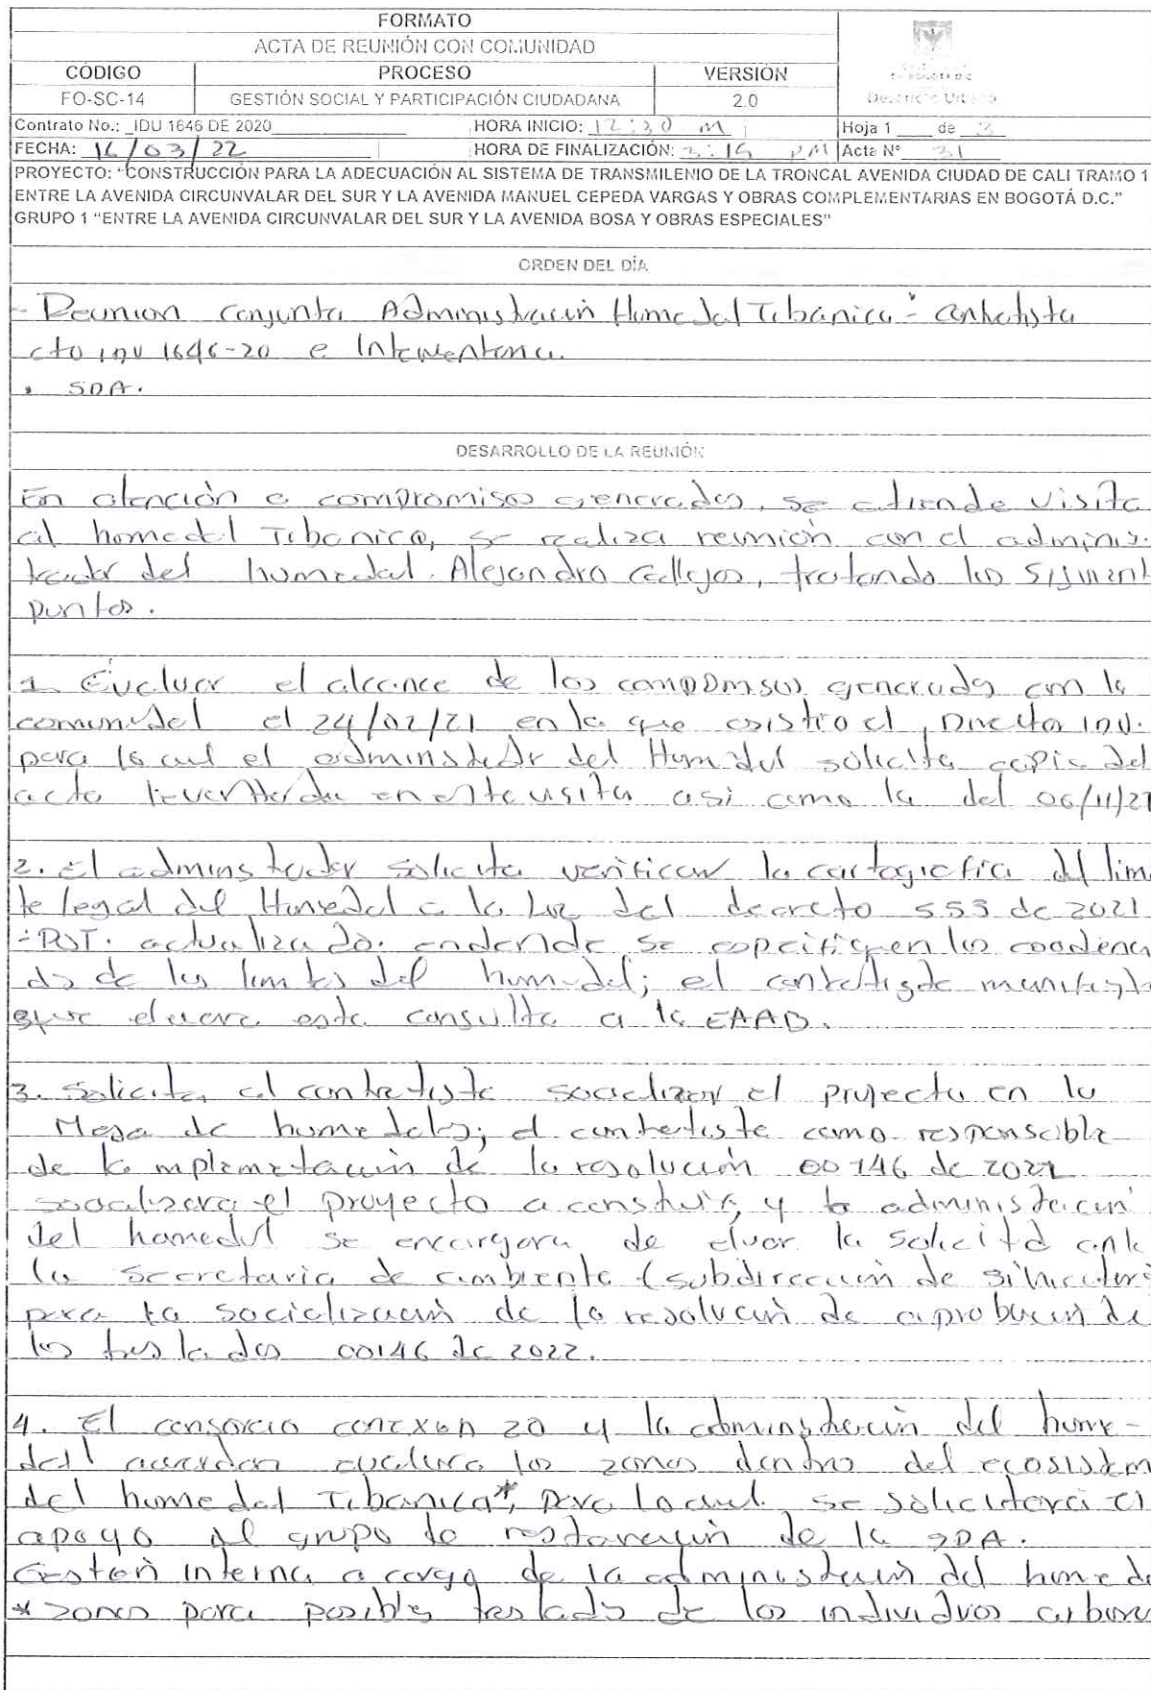 FORMATO
ACTA DE REUNIÓN CON COMUNIDAD
CÓDIGO PROCESO VERSIÓN
FO-SC-14 GESTIÓN SOCIAL Y PARTICIPACIÓN CIUDADANA 2.0
Desarrollo Urbano
Contrato No.: IDU 1646 DE 2020 HORA INICIO: 12:30 M Hoja 1 de 3
FECHA: 16/03/22 HORA DE FINALIZACIÓN: 3:15 PM Acta N° 31
PROYECTO: "CONSTRUCCIÓN PARA LA ADECUACIÓN AL SISTEMA DE TRANSMILENIO DE LA TRONCAL AVENIDA CIUDAD DE CALI TRAMO 1
ENTRE LA AVENIDA CIRCUNVALAR DEL SUR Y LA AVENIDA MANUEL CEPEDA VARGAS Y OBRAS COMPLEMENTARIAS EN BOGOTÁ D.C."
GRUPO 1 "ENTRE LA AVENIDA CIRCUNVALAR DEL SUR Y LA AVENIDA BOSA Y OBRAS ESPECIALES"
ORDEN DEL DÍA
- Reunion conjunta Administración Humedal Tibanica - contratista
cto IDU 1646-20 e Interventoria.
. SDA.
DESARROLLO DE LA REUNIÓN
En atención a compromisos generados, se atiende visita
al humedal Tibanica, se realiza reunión con el adminis-
trador del humedal. Alejandro Callejas, tratando los siguient
puntos.
1. Evaluar el alcance de los compromisos generados con la
comunidad el 24/02/21 en la que asistio el Director IDU.
para lo cual el administrador del Humedal solicita copia del
acta levantada en esta visita asi como la del 06/11/21
2. El administrador solicita verificar la cartografia del limi
te legal del Humedal a la luz del decreto 555 de 2021
-POT. actualizado. en donde se especifiquen las coordena
das de los limites del humedal; el contratista manifiesta
que elevara esta consulta a la EAAB.
3. Solicita al contratista socializar el proyecto en la
Mesa de humedales; el contratista como responsable
de la implementación de la resolución 00146 de 2022
socializara el proyecto a construir, y la administración
del humedal se encargara de elevar la solicitd ante
la secretaria de ambiente (subdirección de silvicultura
para la socialización de la resolución de aprobación de
los traslados 00146 de 2022.
4. El consorcio conexión 20 y la administración del hume-
dal acuerdan evaluar las zonas dentro del ecosistem
del humedal Tibanica*, para lo cual se solicitara el
apoyo al grupo de restauración de la SDA.
Gestión interna a cargo de la administración del humeda
* zonas para posibles traslados de los individuos arbore